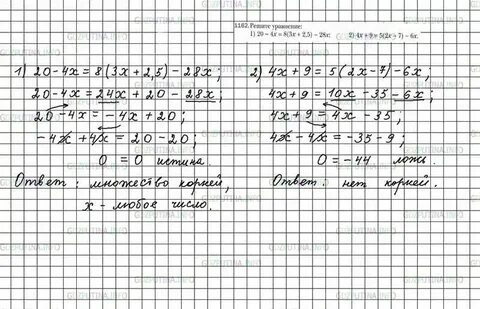 1162. Решите уравнение:
1) 20 − 4x = 8(3x + 2,5) − 28x; 2) 4x + 9 = 5(2x − 7) − 6x.
1) 20-4x = 8(3x + 2,5) - 28x;
20-4x = 24x + 20 - 28x;
20 -4x = -4x + 20;
-4x + 4x = 20 - 20;
0 = 0 истина.
Ответ: множество корней,
x - любое число.
2) 4x + 9 = 5(2x-7) - 6x;
4x + 9 = 10x - 35 - 6x;
4x + 9 = 4x - 35;
4x - 4x = -35 - 9;
0 = -44 ложь.
Ответ: нет корней.
GDZPUTINA.INFO